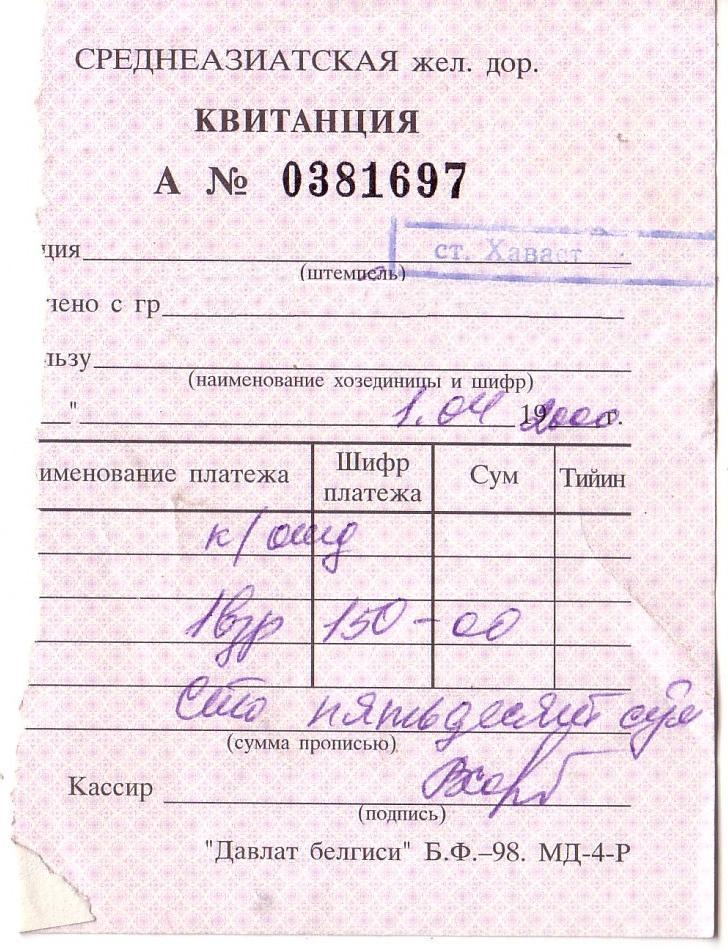 СРЕДНЕАЗИАТСКАЯ жел. дор.
КВИТАНЦИЯ
А № 0381697
ция ст. Хаваст
(штемпель)
чено с гр
льзу
(наименование хозединицы и шифр)
" 1.04 192000 г.
именование платежа Шифр платежа Сум Тийин
к/отд
1взр 150-00
Сто пятьдесят сум
(сумма прописью)
Кассир
(подпись)
"Давлат белгиси" Б.Ф.–98. МД-4-Р